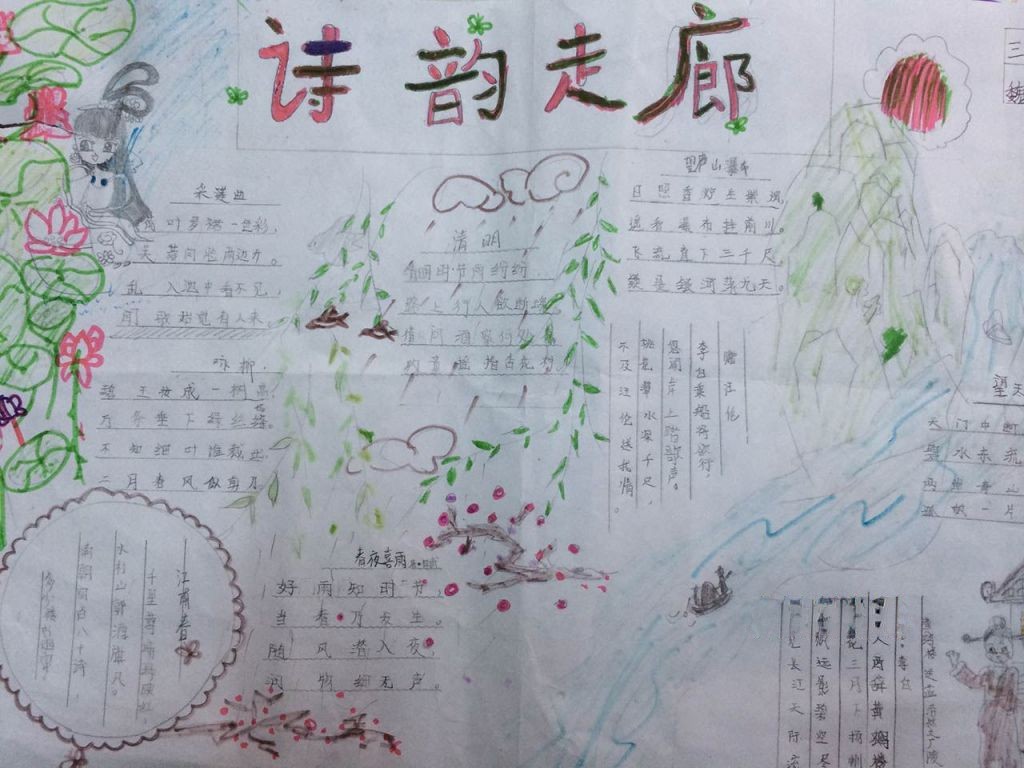 诗韵走廊
三
采莲曲
荷叶罗裙一色裁，
芙蓉向脸两边开。
乱入池中看不见，
闻歌始觉有人来。
咏柳
碧玉妆成一树高，
万条垂下绿丝绦。
不知细叶谁裁出，
二月春风似剪刀
清明
清明时节雨纷纷
路上行人欲断魂
借问酒家何处有
牧童遥指杏花村
望庐山瀑布
日照香炉生紫烟，
遥看瀑布挂前川。
飞流直下三千尺
疑是银河落九天。
赠汪伦
李白乘舟将欲行，
忽闻岸上踏歌声。
桃花潭水深千尺，
不及汪伦送我情。
望天
天门中断
碧水东流
两岸青山
孤帆一片
江南春
千里莺啼绿映红，
水村山郭酒旗风。
南朝四百八十寺，
多少楼台烟雨中
春夜喜雨
好雨知时节，
当春乃发生。
随风潜入夜，
润物细无声。
黄鹤楼送孟浩然之广陵
李白
人西辞黄鹤楼
花三月下扬州
帆远影碧空尽
见长江天际流